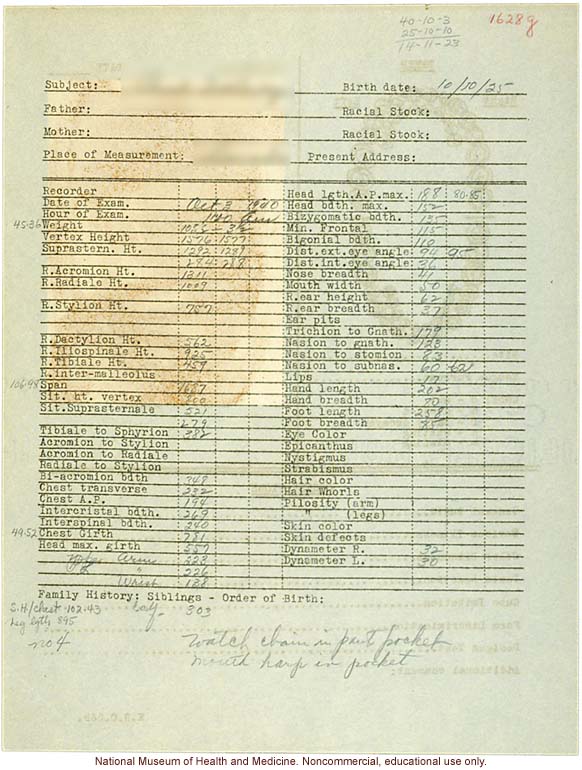 40-10-3
25-10-10
14-11-23
1628g
Subject:
Birth date: 10/10/25
Father:
Racial Stock:
Mother:
Racial Stock:
Place of Measurement:
Present Address:
Recorder
Date of Exam. Oct 3 1940
Hour of Exam.
45.36 Weight
Vertex Height 1576 1577
Suprastern. Ht. 1282 1281
284 288
R.Acromion Ht. 1311
R.Radiale Ht. 1009
R.Stylion Ht. 757
R.Dactylion Ht. 562
R.Iliospinale Ht. 925
R.Tibiale Ht. 459
R.inter-malleolus
106.98 Span 1687
Sit. ht. vertex 800
Sit.Suprasternale 521
279
Tibiale to Sphyrion 382
Acromion to Stylion
Acromion to Radiale
Radiale to Stylion
Bi-acromion bdth 348
Chest transverse 232
Chest A.P. 194
Intercristal bdth. 269
Interspinal bdth. 240
49.52 Chest Girth 781
Head max. girth 557
Arm 223
" 226
Wrist 158
Head lgth.A.P.max. 188 80.85
Head bdth. max. 152
Bizygomatic bdth. 135
Min. Frontal 115
Bigonial bdth. 110
Dist.ext.eye angle 94 95
Dist.int.eye angle 36
Nose breadth 41
Mouth width 50
R.ear height 62
R.ear breadth 37
Ear pits
Trichion to Gnath. 179
Nasion to gnath. 123
Nasion to stomion 83
Nasion to subnas. 60 62
Lips 17
Hand length 202
Hand breadth 70
Foot length 258
Foot breadth 85
Eye Color
Epicanthus
Nystigmus
Strabismus
Hair color
Hair Whorls
Pilosity (arm)
" (legs)
Skin color
Skin defects
Dynameter R. 32
Dynameter L. 30
Family History: Siblings - Order of Birth:
S.H/chest 102.43
303
Leg lgth 895
no 4
Watch chain in pant pocket
Mouth harp in pocket
National Museum of Health and Medicine. Noncommercial, educational use only.